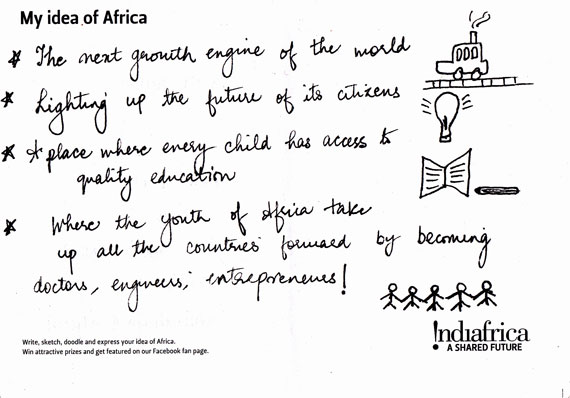 My idea of Africa
* The next growth engine of the world
* Lighting up the future of its citizens
* A place where every child has access to
quality education
* Where the youth of Africa take
up all the countries forward by becoming
doctors, engineers, entrepreneurs!
!ndiafrica
A SHARED FUTURE
Write, sketch, doodle and express your idea of Africa.
Win attractive prizes and get featured on our Facebook fan page.